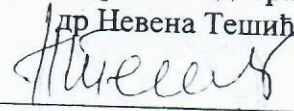 др Невена Тешић